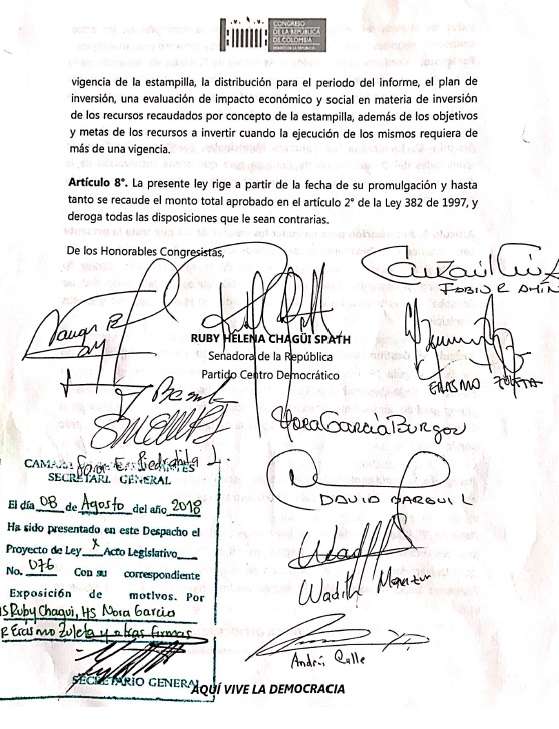 CONGRESO
DE LA REPÚBLICA
DE COLOMBIA
vigencia de la estampilla, la distribución para el periodo del informe, el plan de
inversión, una evaluación de impacto económico y social en materia de inversión
de los recursos recaudados por concepto de la estampilla, además de los objetivos
y metas de los recursos a invertir cuando la ejecución de los mismos requiera de
más de una vigencia.
Artículo 8°. La presente ley rige a partir de la fecha de su promulgación y hasta
tanto se recaude el monto total aprobado en el artículo 2° de la Ley 382 de 1997, y
deroga todas las disposiciones que le sean contrarias.
De los Honorables Congresistas,
FABIO R AMIN
RUBY HELENA CHAGÜI SPATH
Senadora de la República
Partido Centro Democrático
ERASMO ZULETA
Nora García Burgos
CAMARA
SECRETARI GENERAL
DAVID BARGUIL
El día 08 de Agosto del año 2018
Ha sido presentado en este Despacho el
Proyecto de Ley X Acto Legislativo
No. 076 Con su correspondiente
Exposición de motivos. Por
Ruby Chagui, HS Nora Garcia
Erasmo Zuleta y otras firmas
Wadith Manzur
Andrés Calle
SECRETARIO GENERAL
AQUÍ VIVE LA DEMOCRACIA